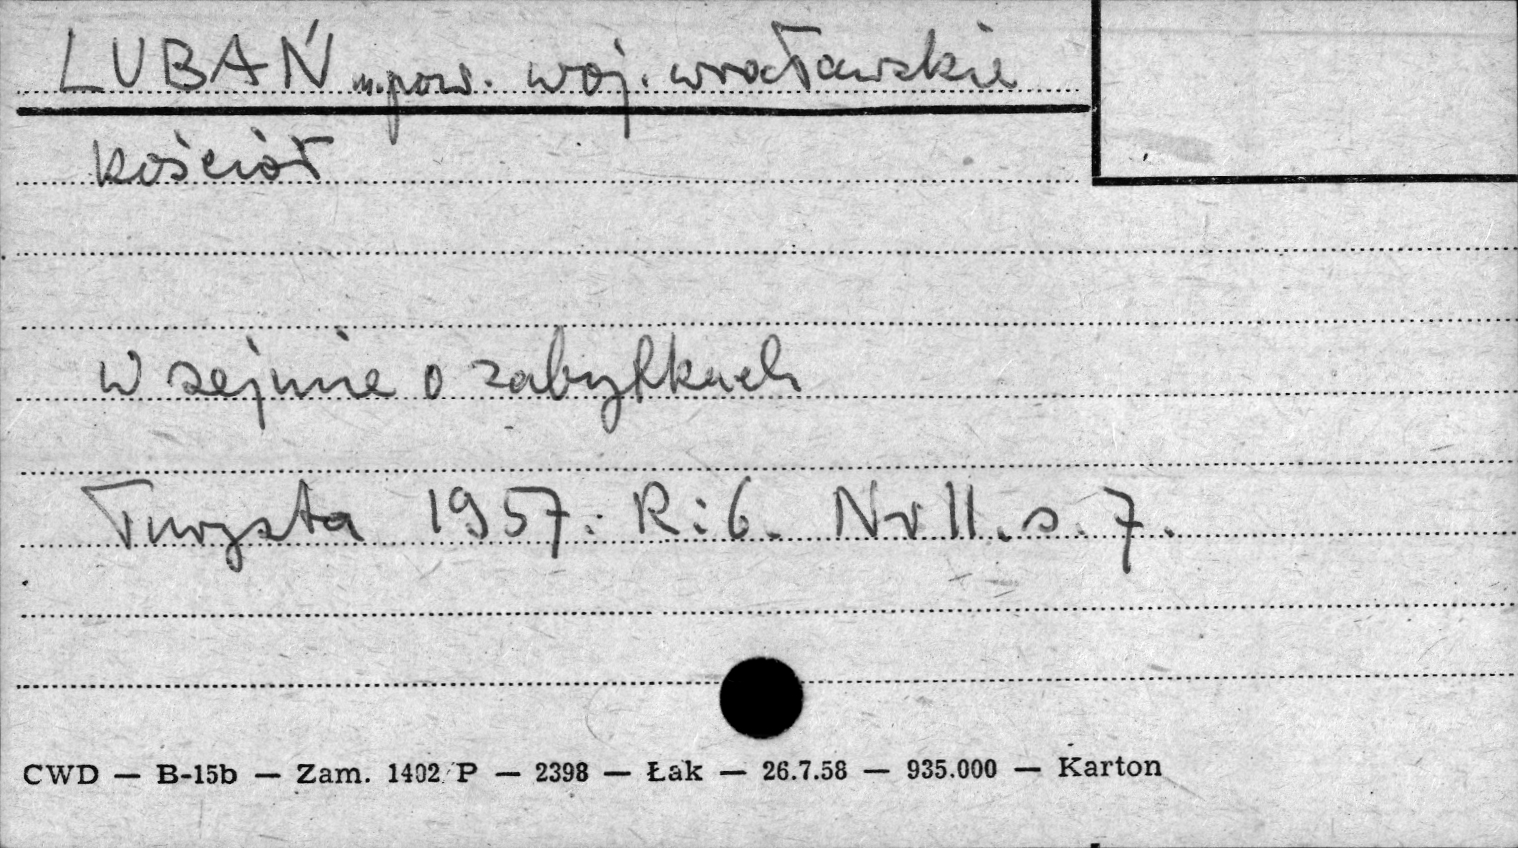 LUBAŃ m.pow. woj. wrocławskie
kościół
w sejmie o zabytkach
Turysta 1957. R:6. Nr 11. s. 7.
CWD — B-15b — Zam. 1402/P — 2398 — Łak — 26.7.58 — 935.000 — Karton